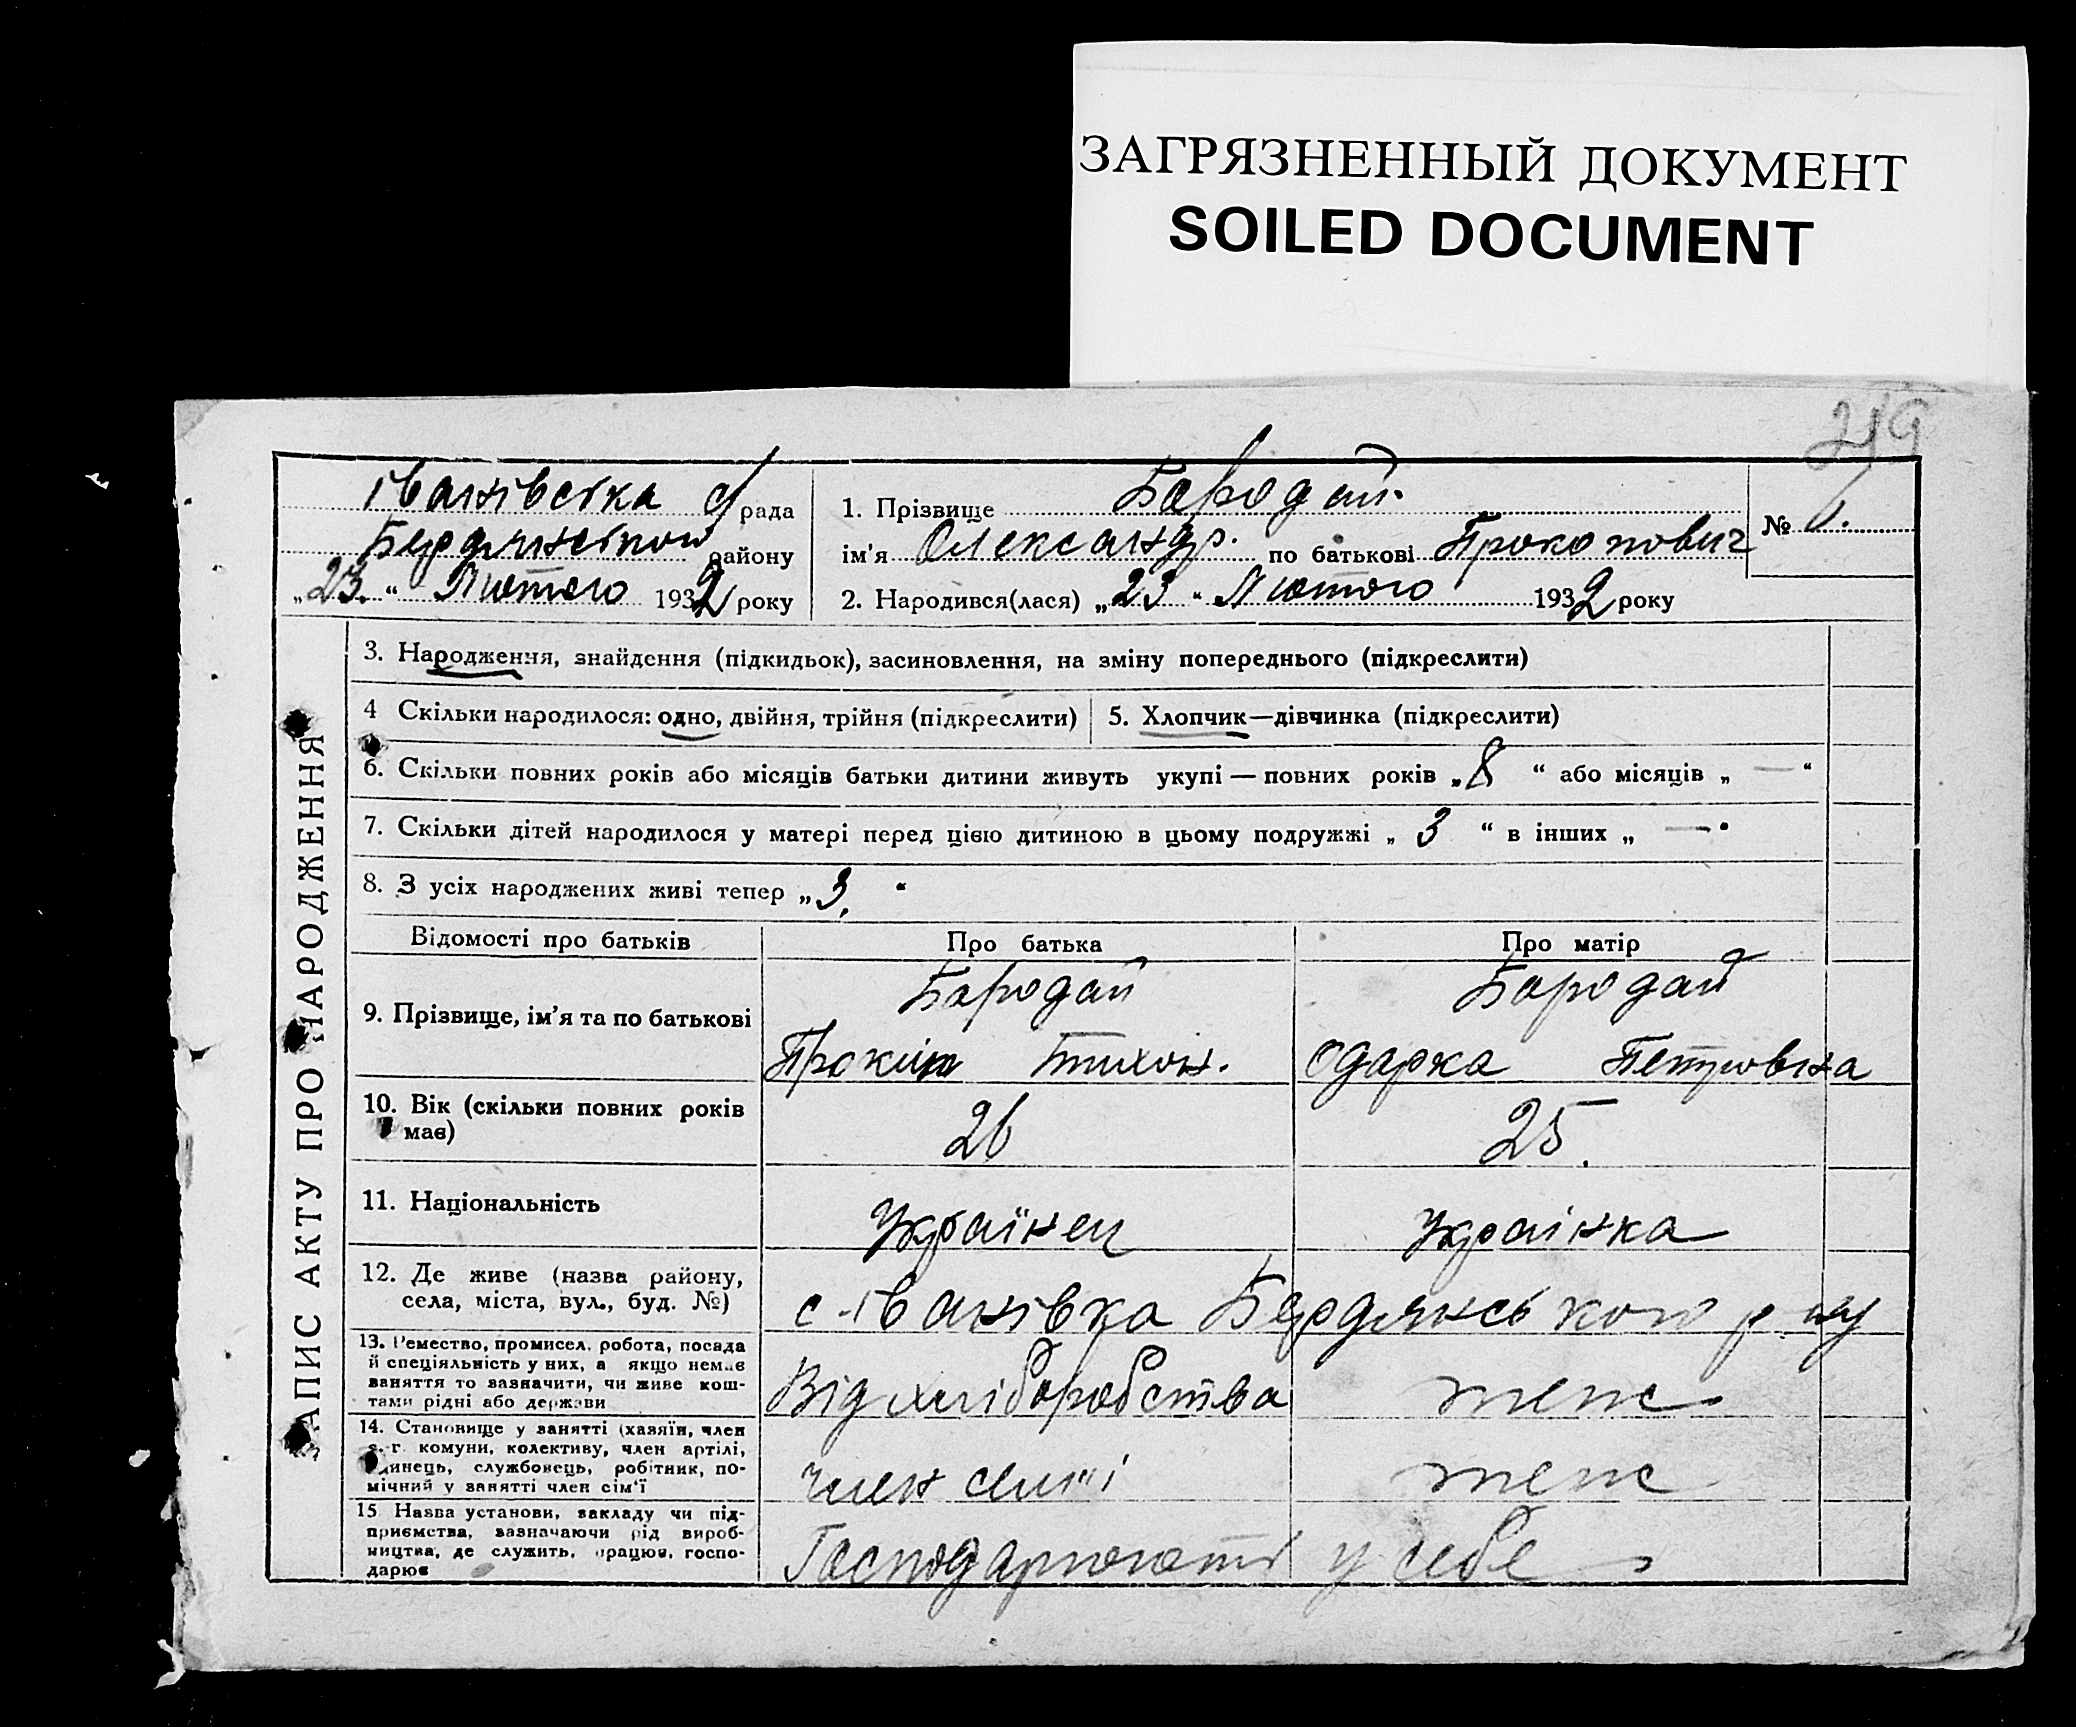 ЗАГРЯЗНЕННЫЙ ДОКУМЕНТ
SOILED DOCUMENT
Іванівська с/рада
Бердянського району
„23.“ Лютого 1932 року
1. Прізвище Бородай
ім'я Олександр. по батькові Прокопович
2. Народився(лася) „23“ Лютого 1932 року
№
ЗАПИС АКТУ ПРО НАРОДЖЕННЯ
3. Народження, знайдення (підкидьок), засиновлення, на зміну попереднього (підкреслити)
4 Скільки народилося: одно, двійня, трійня (підкреслити)
5. Хлопчик—дівчинка (підкреслити)
6. Скільки повних років або місяців батьки дитини живуть укупі — повних років „8“ або місяців „—“
7. Скільки дітей народилося у матері перед цією дитиною в цьому подружжі „3“ в інших „—“
8. З усіх народжених живі тепер „3.“
Відомості про батьків Про батька Про матір
Бородай Бородай
9. Прізвище, ім'я та по батькові
Прокіп Тихон. Одарка Петровна
10. Вік (скільки повних років
має)
26 25.
11. Національність
Українец Українка
12. Де живе (назва району,
села, міста, вул., буд. №)
с. Іванівка Бердянського р-ну
13. Ремество, промисел, робота, посада
й спеціяльність у них, а якщо немає
заняття то зазначити, чи живе кош-
тами рідні або держави
Від хліборобства теж
14. Становище у занятті (хазяїн, член
с.-г. комуни, колективу, член артілі,
одинець, службовець, робітник, по-
мічний у занятті член сім'ї
член сімї теж
15 Назва установи, закладу чи під-
приємства, зазначаючи рід вироб-
ництва, де служить, працює, госпо-
дарює
Господарюють у себе